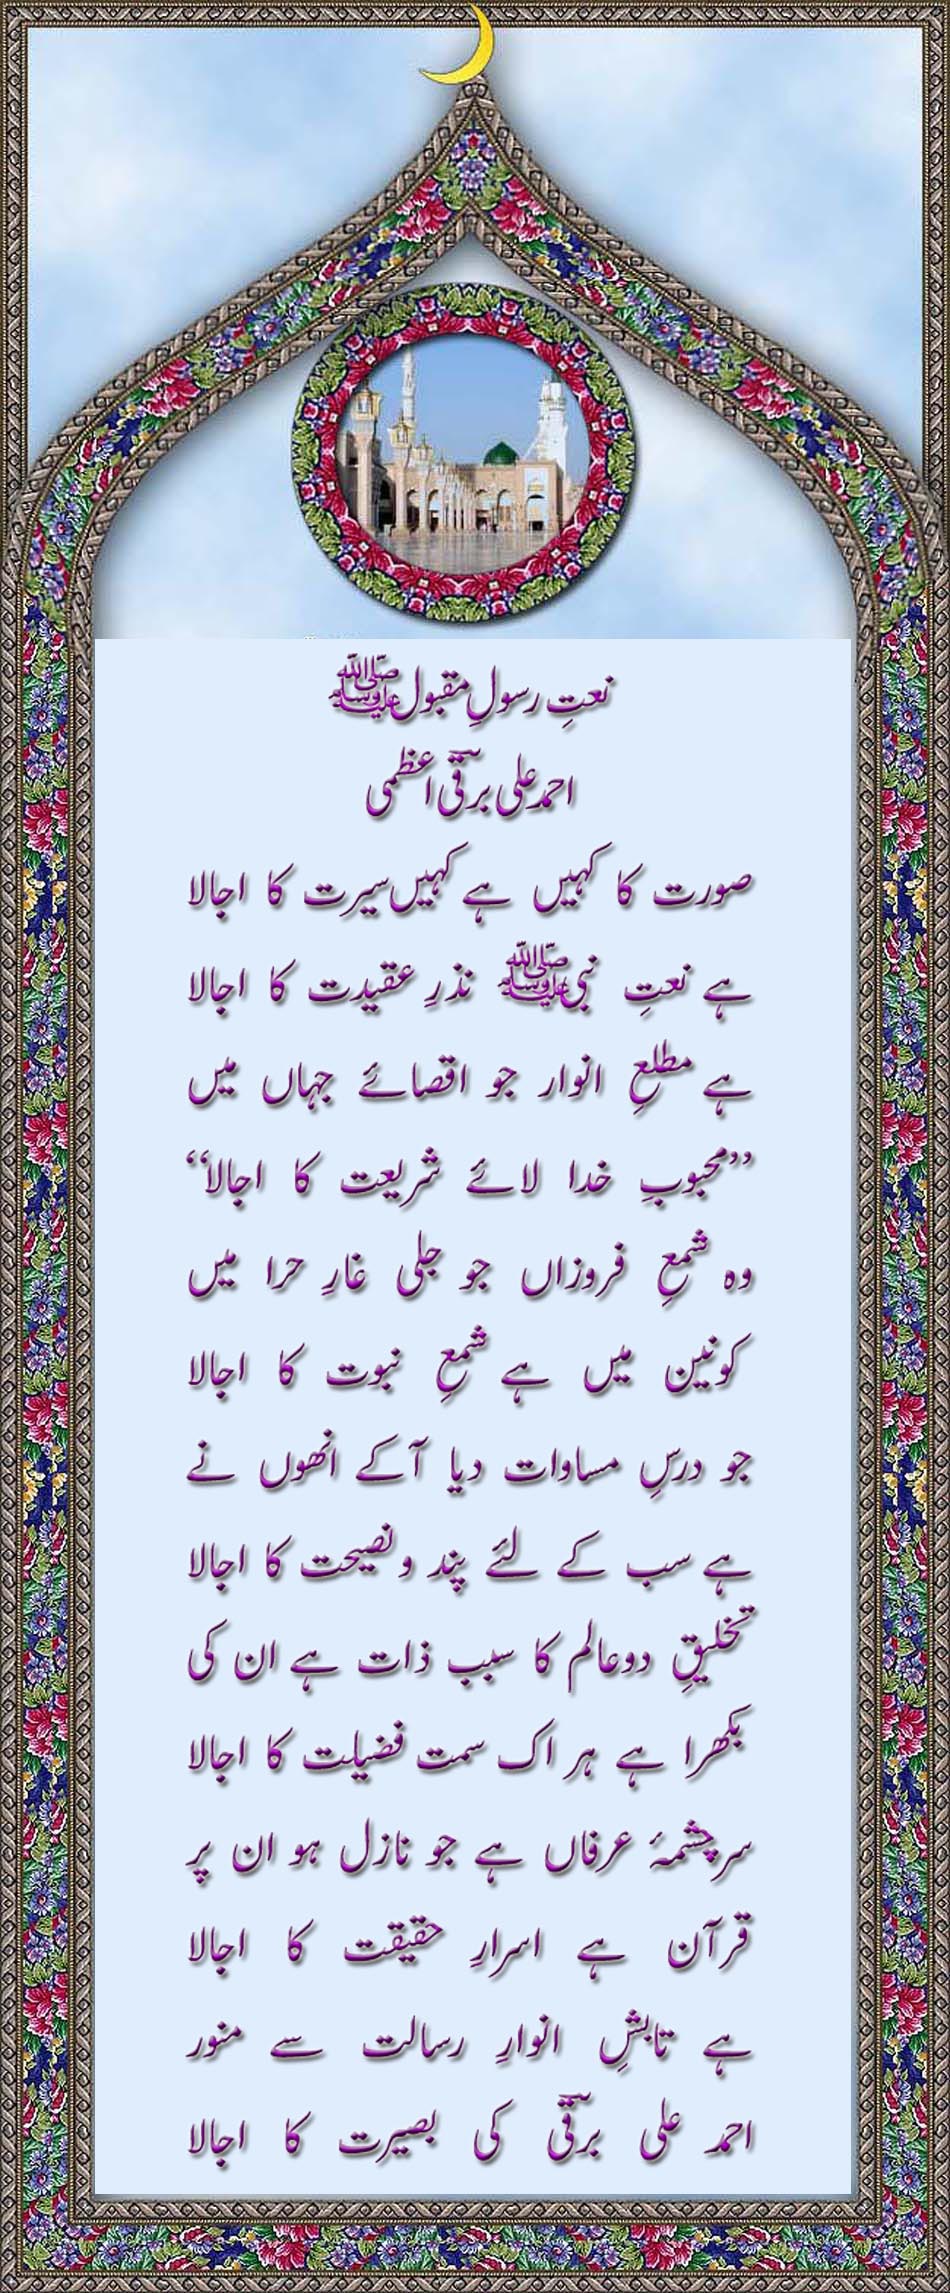 نعتِ رسولِ مقبولﷺ
احمد علی برقیؔ اعظمی
صورت کا کہیں ہے کہیں سیرت کا اجالا
ہے نعتِ نبیﷺ نذرِ عقیدت کا اجالا
ہے مطلعِ انوار جو اقصائے جہاں میں
’’محبوبِ خدا لائے شریعت کا اجالا‘‘
وہ شمعِ فروزاں جو جلی غارِ حرا میں
کونین میں ہے شمعِ نبوت کا اجالا
جو درسِ مساوات دیا آکے انھوں نے
ہے سب کے لئے پند و نصیحت کا اجالا
تخلیقِ دوعالم کا سبب ذات ہے ان کی
بکھرا ہے ہر اک سمت فضیلت کا اجالا
سرچشمۂ عرفاں ہے جو نازل ہو ان پر
قرآن ہے اسرارِ حقیقت کا اجالا
ہے تابشِ انوارِ رسالت سے منور
احمد علی برقیؔ کی بصیرت کا اجالا